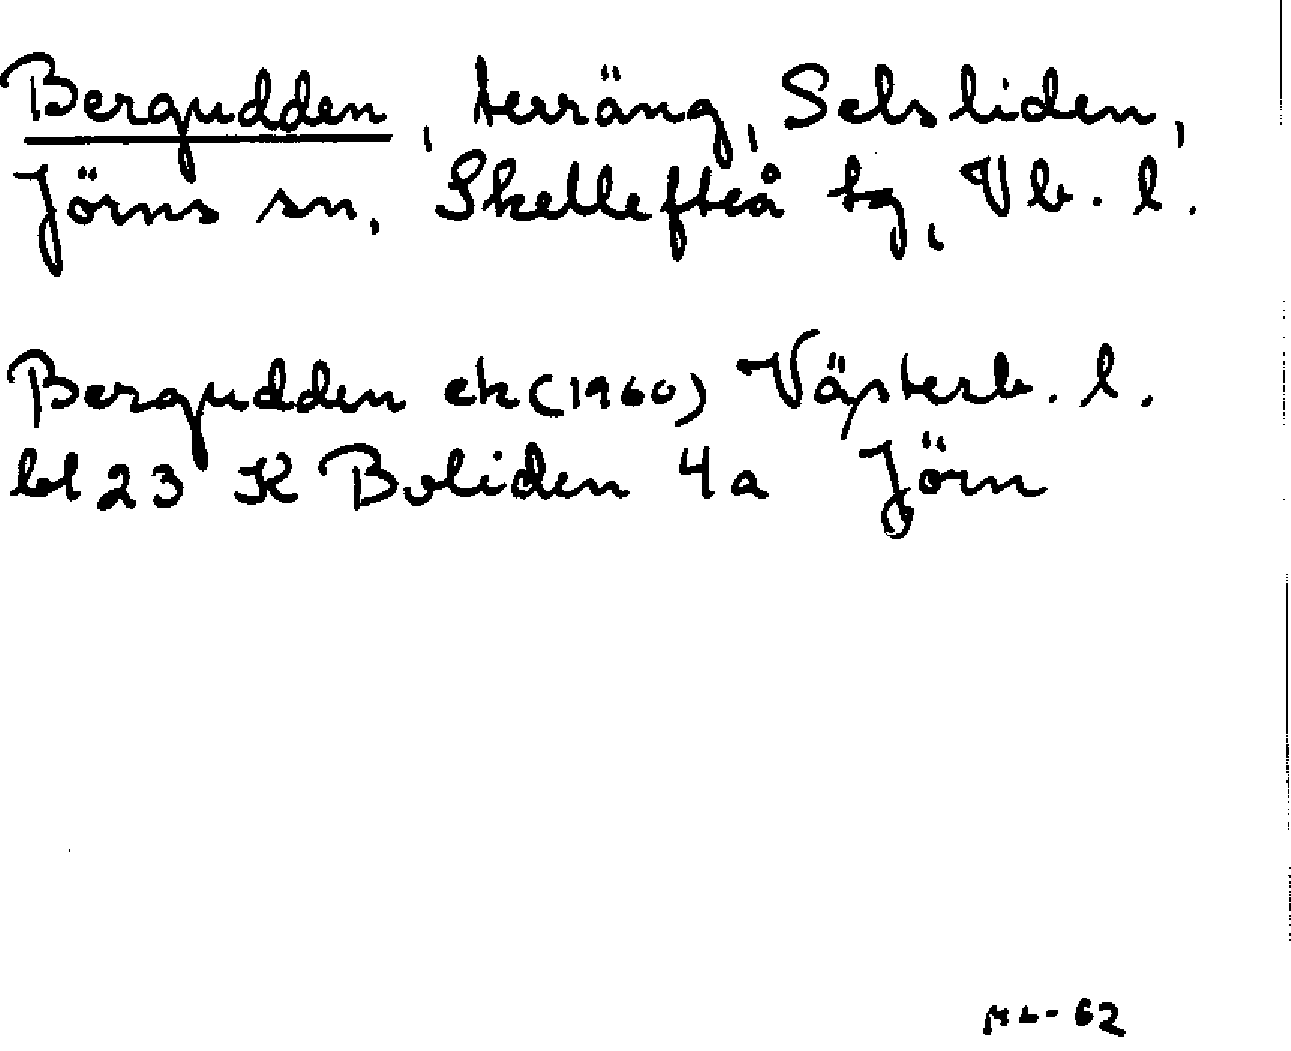 Bergudden, terräng, Selsliden,
Jörns sn, Skellefteå tg, Vb. l.
Bergudden ek (1960) Västerb. l.
bl 23 K Boliden 4a Jörn
ML-62